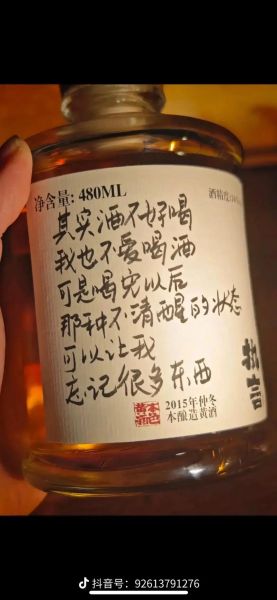 净含量: 480ML
酒精度
其实酒不好喝
我也不爱喝酒
可是喝完以后
那种不清醒的状态
可以让我
忘记很多东西
2015年仲冬
本酿造黄酒
抖音号: 92613791276